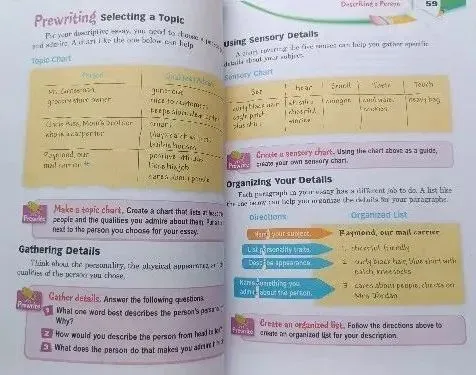 Prewriting Selecting a Topic
For your descriptive essay, you need to choose a person
and admire. A chart like the one below can help
Topic Chart
Person
Mr. 
grocery store owner
generous
nice to customers
keeps store clean
who is a carpenter
builds houses
Raymond, our
mail carrier
positive attitude
likes his job
cares about people
Prewrite
Make a topic chart. Create a chart that lists at least
people and the qualities you admire about them. Put a
next to the person you choose for your essay.
Gathering Details
Think about the personality, the physical appearance, and
qualities of the person you chose.
Prewrite
Gather details. Answer the following questions.
1 What one word best describes the person's
Why?
2 How would you describe the person from head to
3 What does the person do that makes you admire
Describing a Person 59
Using Sensory Details
A chart covering the five senses can help you gather specific
details about your subject.
Sensory Chart
See
Hear
Smell
Taste
Touch
curly black hair
blue shirt
cheerful
cologne
cool water
cookies
heavy bag
Prewrite
Create a sensory chart. Using the chart above as a guide,
create your own sensory chart.
Organizing Your Details
Each paragraph in your essay has a different job to do. A list like
the one below can help you organize the details for your paragraphs.
Directions
Organized List
Name your subject.
Raymond, our mail carrier
List personality traits.
1. cheerful, friendly
Describe appearance.
2. curly black hair, blue shirt with
patch, knee socks
Name something you
admire about the person.
3. cares about people, checks on
Mrs. Jordan
Prewrite
Create an organized list. Follow the directions above to
create an organized list for your description.